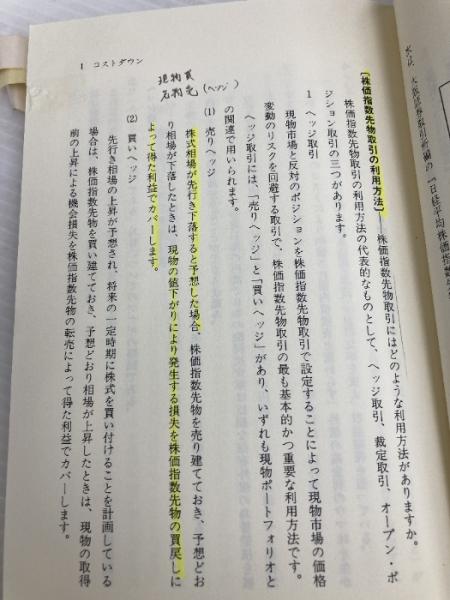 1 コストダウン
現物買
先物売(ヘッジ)
【株価指数先物取引の利用方法】――株価指数先物取引にはどのような利用方法がありますか。
株価指数先物取引の利用方法の代表的なものとして、ヘッジ取引、裁定取引、オープン・ポ
ジション取引の三つがあります。
1 ヘッジ取引
現物市場と反対のポジションを株価指数先物取引で設定することによって現物市場の価格
変動のリスクを回避する取引で、株価指数先物取引の最も基本的かつ重要な利用方法です。
ヘッジ取引には、「売りヘッジ」と「買いヘッジ」があり、いずれも現物ポートフォリオと
の関連で用いられます。
(1) 売りヘッジ
株式相場が先行き下落すると予想した場合、株価指数先物を売り建てておき、予想どお
り相場が下落したときは、現物の値下がりにより発生する損失を株価指数先物の買戻しに
よって得た利益でカバーします。
(2) 買いヘッジ
先行き相場の上昇が予想され、将来の一定時期に株式を買い付けることを計画している
場合は、株価指数先物を買い建てておき、予想どおり相場が上昇したときは、現物の取得
前の上昇による機会損失を株価指数先物の転売によって得た利益でカバーします。